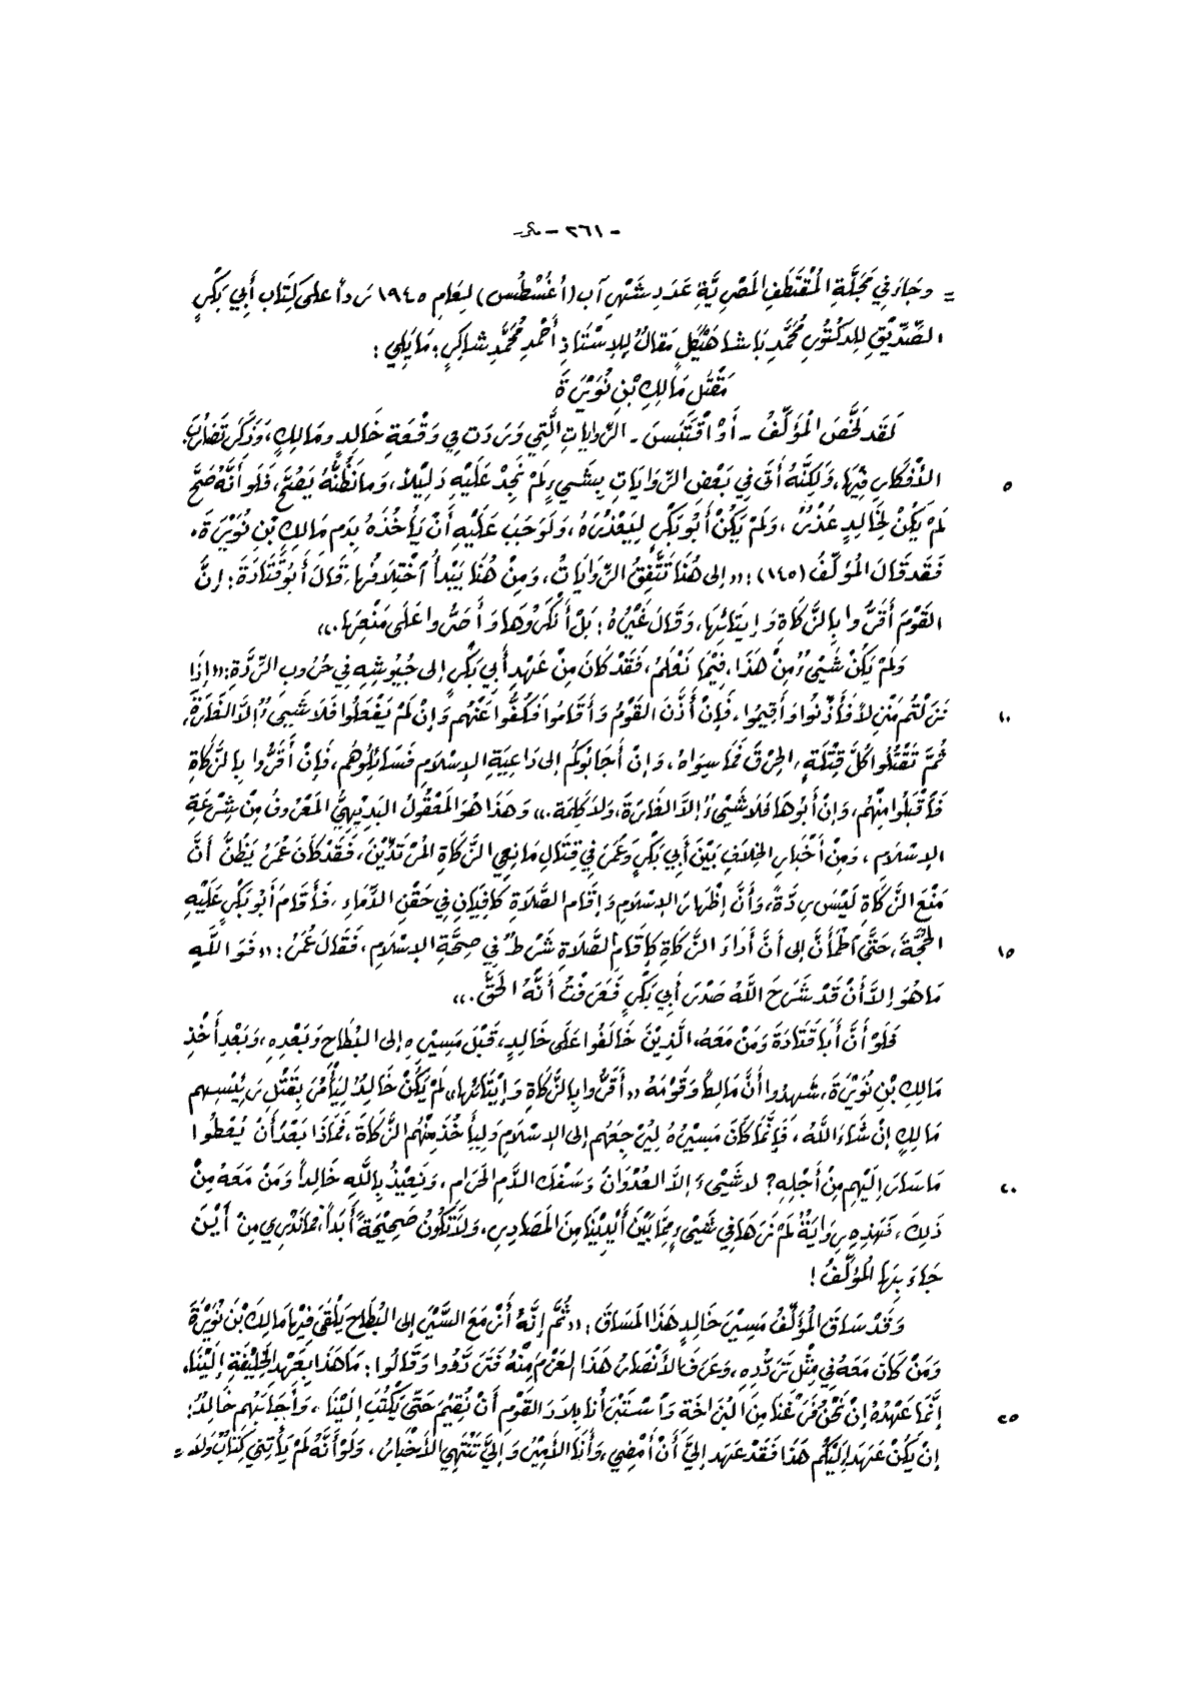 - ٢٦١ - مكرر
= وجَاءَ في مَجَلَّةِ المُقْتَطَفِ المَصْرِيَّةِ عَدَدِ شَهْرِ آب (أُغُسْطُس) لِعَامِ ١٩٤٥ رَداً على كِتَابِ أَبِي بَكْرٍ
الصِّدِّيْقِ لِلدكْتُورِ مُحَمَّدِ بَاشَا هَيْكَلٍ مَقَالٌ لِلاِسْتَاذِ أَحْمَدِ مُحَمَّدِ شَاكِرٍ؛ مَا يَلِي :
مَقْتَلِ مَالِكِ بْنِ نُوَيْرَةَ
لَقَد لَخَّصَ المُؤَلِّفُ - أَوْ اقْتَبَسَ - الرِّوَايَاتِ الَّتِي وَرَدَتْ فِي وَقْعَةِ خَالِدٍ ومَالِكٍ، وَذَكَرَ تَضَارُبَ
٥ الأَفْكَارِ فِيْهَا، وَلَكِنَّهُ أَتَى فِي بَعْضِ الرِّوَايَاتِ بِشَيءٍ لَمْ نَجِدْ عَلَيْهِ دَلِيْلاً، وَمَا نَظُنُّهُ يَصُحَّ، فَلَو أَنَّهُ صَحَّ
لَمْ يَكُنْ لِخَالِدٍ عُذْرٌ، وَلَمْ يَكُنْ أَبُو بَكْرٍ لِيَعْذُرَهُ، وَلَوَجَبَ عَلَيْهِ أَنْ يَأْخُذَهُ بِدَمِ مَالِكِ بْنِ نُوَيْرَةَ.
فَقَد قَالَ المُؤَلِّفُ (١٤٥) : « إلى هُنَا تَتَّفِقُ الرِّوَايَاتُ، وَمِنْ هُنَا يَبْدأُ اخْتِلاَفُهَا، قَالَ أَبُو قَتَادَةَ : إنَّ
القَوْمَ أَقَرُّوا بِالزَّكَاةِ وَإيتَائِهَا، وَقَالَ غَيْرُهُ : بَلْ أَنْكَرُوهَا وَأَصَرُّوا عَلَى مَنْعِهَا. »
وَلَمْ يَكُنْ شَيْئٌ مِنْ هَذَا، فِيْمَا نَعْلَمُ، فَقَدْ كَانَ مِنْ عَهْدِ أَبِي بَكْرٍ إلى جُيُوشِهِ فِي حُرُوبِ الرِّدَّةِ: « إذَا
١٠ نَزَلْتُم مَنْزِلاً فَأَذِّنُوا وَأَقِيْمُوا، فَإنْ أَذَّنَ القَوْمُ وَأَقَامُوا فَكُفُّوا عَنْهُم وَإنْ لَمْ يَفْعَلُوا فَلاَ شَيئَ إلاَّ الغَارَةَ،
ثُمَّ تَقْتُلُوا كُلَّ قِتْلَةٍ، الحِرْقَ فَمَا سِوَاهُ، وَإنْ أَجَابُوكُم إلى دَاعِيَةِ الإسْلاَمِ فَسَائِلُوهُم، فَإنْ أَقَرُّوا بِالزَّكَاةِ
فَاقْبَلُوا مِنْهُم، وَإنْ أَبُوهَا فَلاَ شَيْئَ إلاَّ الغَارَةَ، وَلاَ كَلِمَة. » وَهَذَا هُوَ المَعْقُولُ البَدِيْهِيُّ المَعْرُوفُ مِنْ شِرْعَةِ
الإسْلاَمِ، وَمِنْ أَخْبَارِ الخِلاَفِ بَيْنَ أَبِي بَكْرٍ وَعُمَرَ فِي قِتَالِ مَانِعِي الزَّكَاةِ المُرْتَدِّيْنَ، فَقَدْ كَانَ عُمَرُ يَظُنُّ أَنَّ
مَنْعَ الزَّكَاةِ لَيْسَ رِدَّةً، وَأَنَّ إظْهَارَ الإسْلاَمِ وَإقَامِ الصَّلاَةِ كَافِيَانِ فِي حَقْنِ الدِّمَاءِ، فَأَقَامَ أَبُو بَكْرٍ عَلَيْهِ
١٥ الحُجَّةَ، حَتَّى اطْمَأَنَّ إلى أَنَّ أَدَاءَ الزَّكَاةِ كَإقَامِ الصَّلاَةِ شَرْطٌ فِي صِحَّةِ الإسْلاَمِ، فَقَالَ عُمَرُ : « فَوَاللَّهِ
مَا هُوَ إلاَّ أَنْ قَدْ شَرَحَ اللَّهُ صَدْرَ أَبِي بَكْرٍ فَعَرَفْتُ أَنَّهُ الحَقَّ. »
فَلَوْ أَنَّ أَبَا قَتَادَةَ وَمَنْ مَعَهُ، الَّذِيْنَ خَالَفُوا عَلَى خَالِدٍ، قَبْلَ مَسِيْرِهِ إلى البُطَاحِ وَبَعْدِهِ، وَبَعْدِ أَخْذِ
مَالِكِ بْنِ نُوَيْرَةَ، شَهِدُوا أَنَّ مَالِكاً وَقَوْمَهُ « أَقَرُّوا بِالزَّكَاةِ وَإيْتَائِهَا » لَمْ يَكُنْ خَالِدٌ لِيَأْمُرَ بِقَتْلِ رَئِيْسِهِم
مَالِكٍ إنْ شَاءَ اللَّهُ، فَإنَّمَا كَانَ مَسِيْرُهُ لِيُرْجِعَهُم إلى الإسْلاَمِ وَلِيأْخُذَ مِنْهُم الزَّكَاةَ، فَمَاذَا بَعْدَ أَنْ يُعْطُوا
٢٠ مَا سَارَ إلَيْهِم مِنْ أَجْلِهِ؟ لاَ شَيْئَ إلاَّ العُدْوَانُ وَسَفْكَ الدَّمِ الحَرَامِ، وَنَعِيْذُ بِاللَّهِ خَالِداً وَمَنْ مَعَهُ مِنْ
ذَلِكَ، فَهَذِهِ رِوَايَةٌ لَمْ نَرَهَا فِي شَيْئٍ مِمَّا بَيْنَ أَيْدِيْنَا مِنَ المَصَادِرِ، وَلاَ تَكُونُ صَحِيْحَةً أَبَداً، فَمَا نَدْرِي مِنْ أَيْنَ
جَاءَ بِهَا المُؤَلِّفُ!
وَقَدْ سَاقَ المُؤَلِّفُ مَسِيْرَ خَالِدٍ هَذَا المَسَاقَ : « ثُمَّ إنَّهُ أَزْمَعَ السَّيْرَ إلى البُطَاحِ يَلْقَى فِيْهَا مَالِكَ بْنَ نُوَيْرَةَ
وَمَنْ كَانَ مَعَهُ فِي مِثْلِ تَرَدُّدِهِ، وَعَرَفَ الأَنْصَارُ هَذَا العَزْمَ مِنْهُ فَتَرَدَّدُوا وَقَالُوا: مَا هَذَا بِعَهْدِ الخَلِيْفَةِ إلَيْنَا،
٢٥ إنَّمَا عَهْدُهُ إنْ نَحْنُ فَرَغْنَا مِنَ البُزَاخَةِ وَاسْتَبْرَأْنَا بِلاَدَ القَوْمِ أَنْ نُقِيْمَ حَتَّى يَكْتُبَ إلَيْنَا، وَأَجَابَهُم خَالِدٌ:
إنْ يَكُنْ عَهِدَ إلَيْكُم هَذَا فَقَدْ عَهِدَ إلَيَّ أَنْ أَمْضِي، وَأَنَا الأَمِيْرُ وَإلَيَّ تَنْتَهِي الأَخْبَارُ، وَلَوْ أَنَّهُ لَمْ يَأْتِنِي كِتَابٌ وَلاَ =